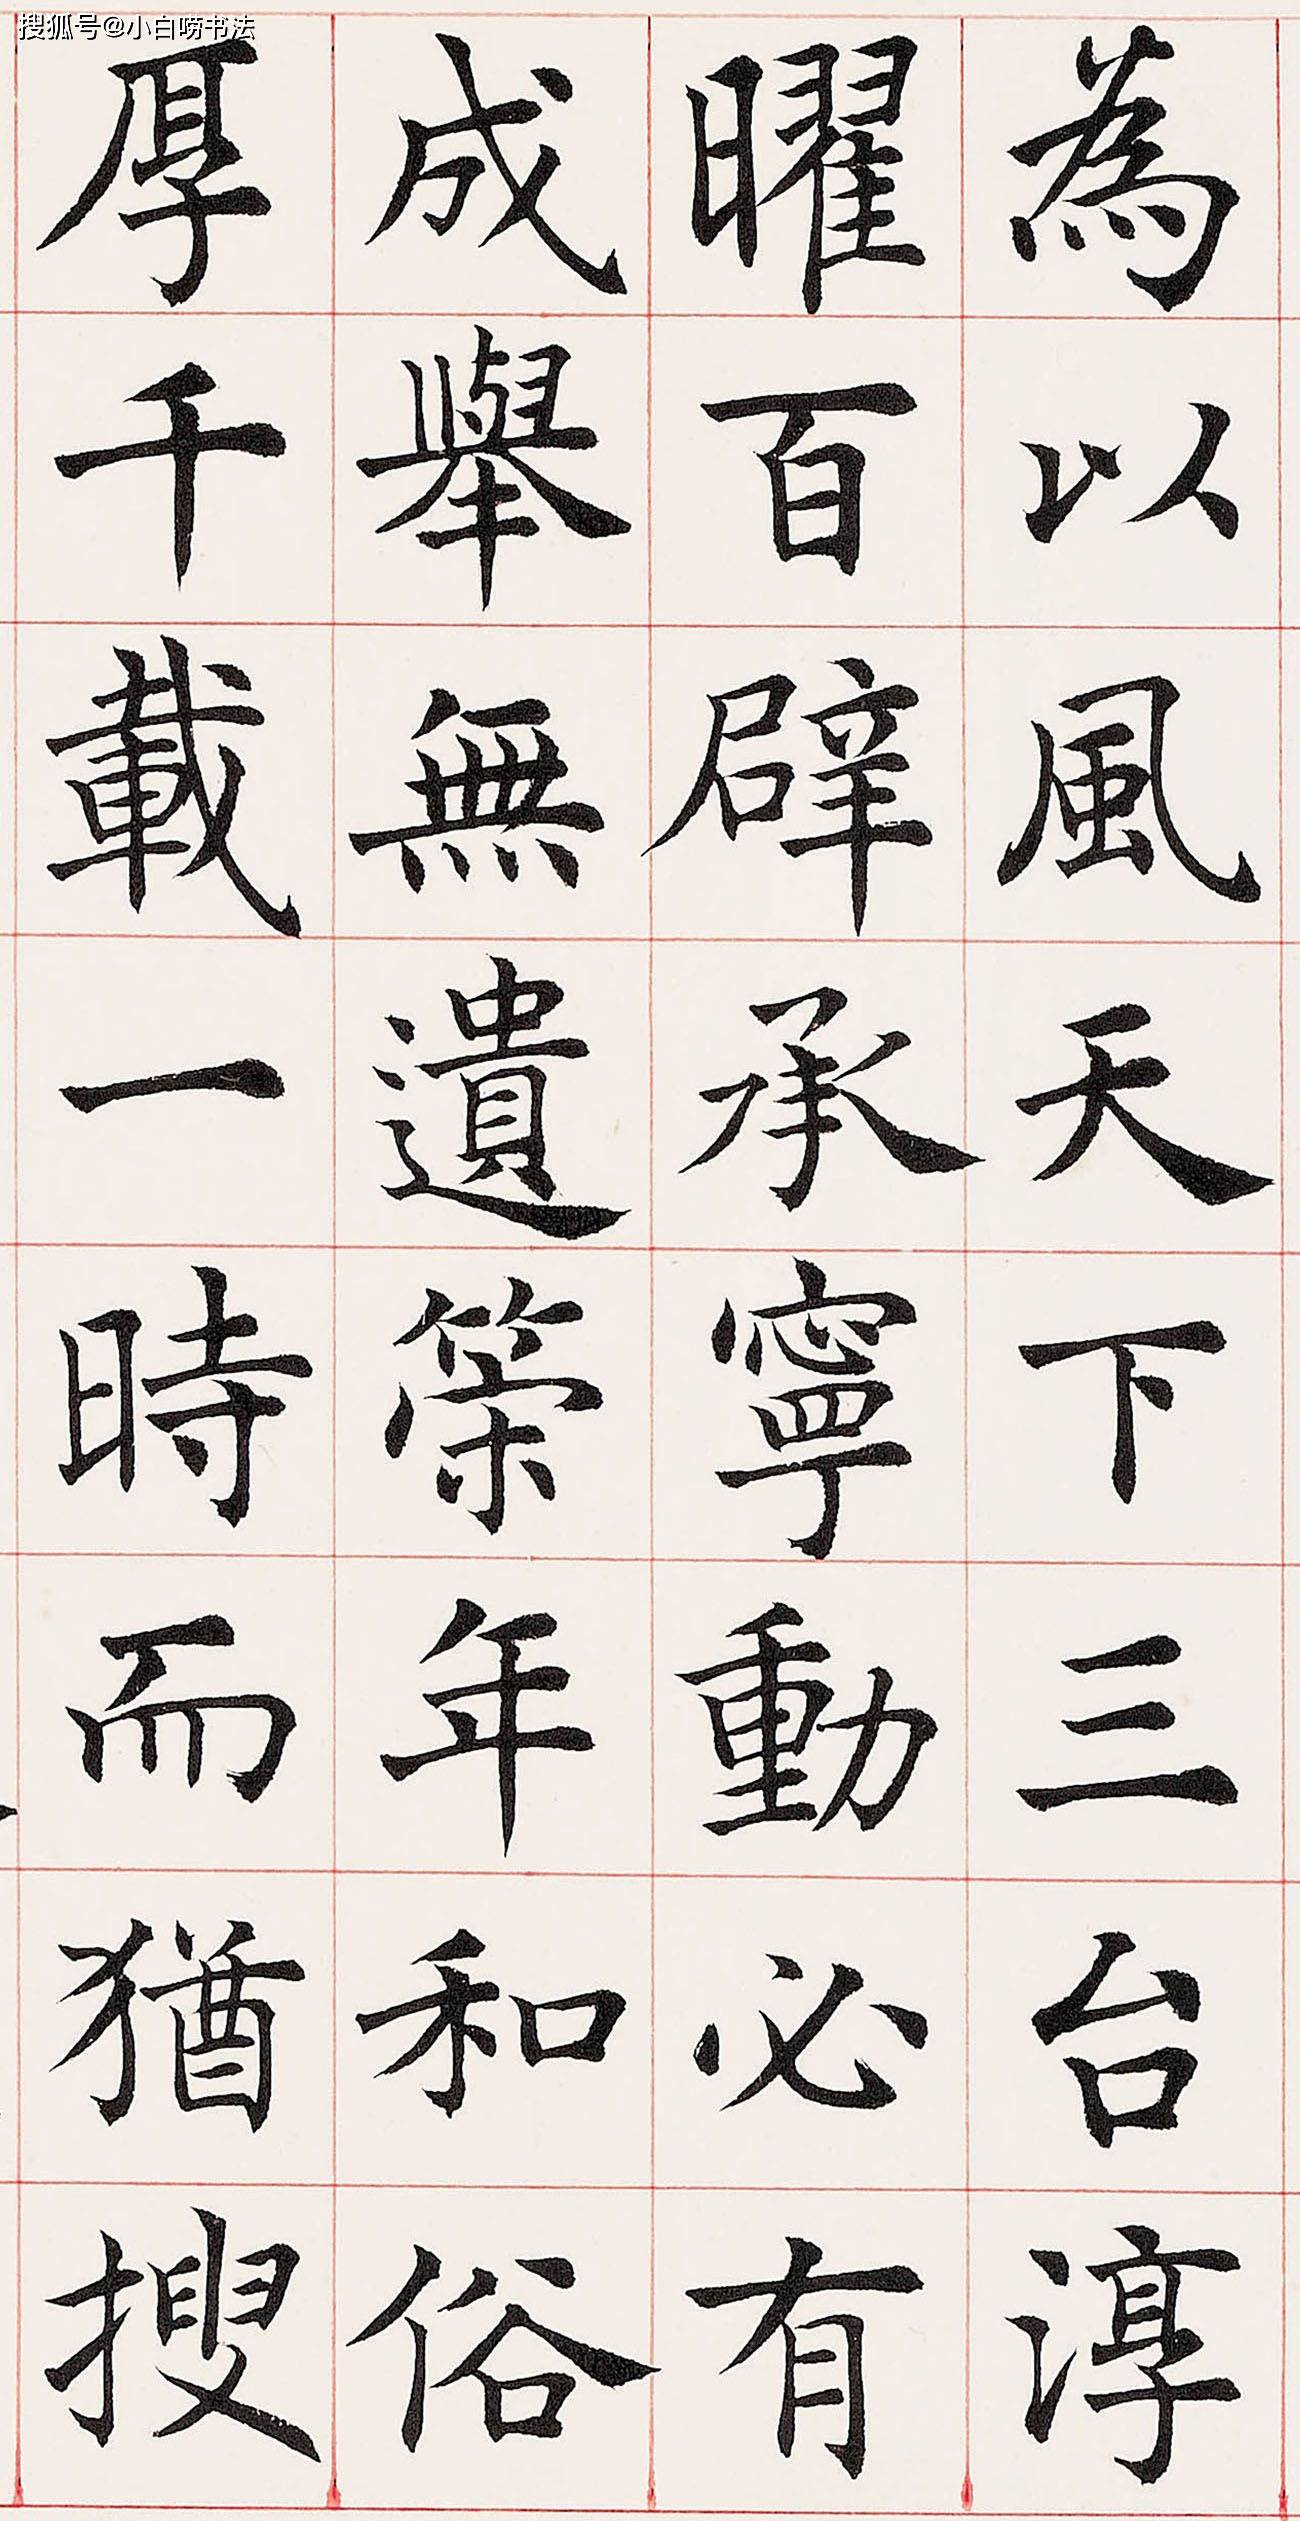 搜狐号@小白唠书法
為以風天下三台淳
曜百辟承寧動必有
成舉無遺策年和俗
厚千載一時而猶搜